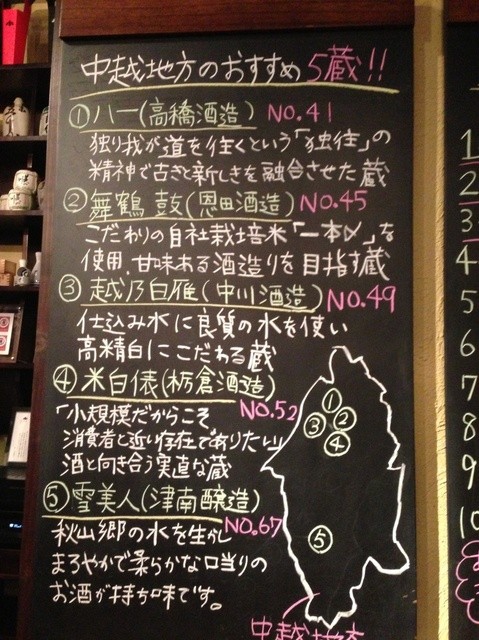 中越地方のおすすめ5蔵!!
①八一(高橋酒造) NO.41
独り我が道を往くという「独往」の
精神で古きと新しきを融合させた蔵
②舞鶴 鼓(恩田酒造)NO.45
こだわりの自社栽培米「一本〆」を
使用、甘味ある酒造りを目指す蔵
③越乃白雁(中川酒造)NO.49
仕込み水に良質の水を使い
高精白にこだわる蔵
④米白俵(栃倉酒造)
NO.52
「小規模だからこそ
消費者と近い存在でありたい」
酒と向き合う実直な蔵
⑤雪美人(津南醸造)
NO.67
秋山郷の水を生かし
まろやかで柔らかな口当りの
お酒が持ち味です。
①
③ ②
④
⑤
中越地方
1
2
3
4
5
6
7
8
9
10